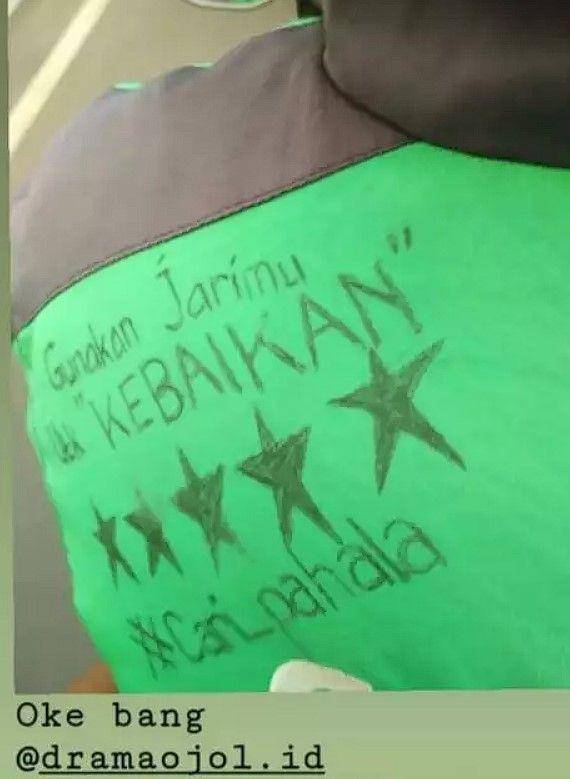 Gunakan jarimu
Utk "KEBAIKAN"
#Cari_pahala
Oke bang
@dramaojol.id